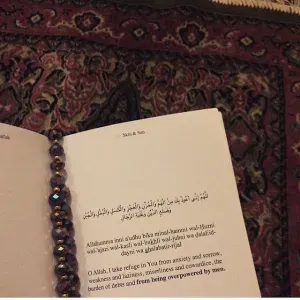 اللَّهُمَّ إِنِّي أَعُوذُ بِكَ مِنَ الْهَمِّ وَالْحَزَنِ وَالْعَجْزِ وَالْكَسَلِ وَالْبُخْلِ وَالْجُبْنِ
وَضَلَعِ الدَّيْنِ وَغَلَبَةِ الرِّجَالِ
Allahumma inni a'udhu bika minal-hammi wal-ḥuzni
wal-'ajzi wal-kasli wal-bukhli wal-jubni wa ḍala'id-
dayni wa ghalabatir-rijal
O Allah, I take refuge in You from anxiety and sorrow,
weakness and laziness, miserliness and cowardice, the
burden of debts and from being overpowered by men.